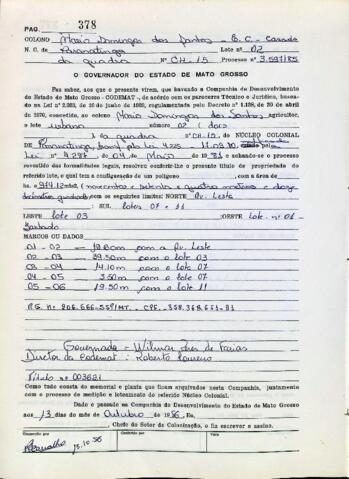 PAG. 378
COLONO Mario Domingos dos Santos - B.C. - Casado
N. C. de Paranatinga Lote nº 02
da quadra Nº CH. 15 Processo nº 3.597/85
O GOVERNADOR DO ESTADO DE MATO GROSSO
Faz saber, aos que a presente virem, que havendo a Companhia de Desenvolvimento
do Estado de Mato Grosso - CODEMAT -, de acôrdo com os pareceres Técnico e Jurídico, baseado
na Lei nº de 16 de junho de regulamentada pelo Decreto nº 1.138, de 20 de abril
de 1970, concedido, ao colono Mario Domingos dos Santos, agricultor,
o lote urbano número 02 ( dois
) da quadra nº CH. 15, do NÚCLEO COLONIAL
DE Paranatinga,
Lei nº 4.287 de 04 de Maio de 1981 e achando-se o processo
revestido das formalidades legais, resolveu conferir-lhe o presente título de propriedade do
referido lote, o qual tem a configuração de um polígono com a área de
( novecentos e setenta e quatro metros e doze
decímetros quadrados) com os seguintes limites: NORTE Av. Leste
SUL lotes 07 e 11
LESTE lote 03 OESTE lote nº 01
MARCOS OU DADOS
01 - 02 — com a Av. Leste
02 - 03 — 39.50m com o lote 03
03 - 04 — 14.10m com o lote 07
04 - 05 — 3.50m com o lote 07
05 - 06 — 19.50m com o lote 11
R.G. nº 206.666-SSP/MT. - CPF.
Governador - Wilmar Peres de Farias
Diretor da Codemat : Roberto Loureiro
Título nº 003621
Como tudo consta do memorial e planta que ficam arquivados nesta Companhia, juntamente
com o processo de medição e loteamento do referido Núcleo Colonial.
Dado e passado na Companhia de Desenvolvimento do Estado de Mato Grosso
aos 13 dias do mês de Outubro de 1986, Eu,
, Chefe do Setor de Colonização, o fiz escrever e assino.
Conferido por VISTO
13.10.86